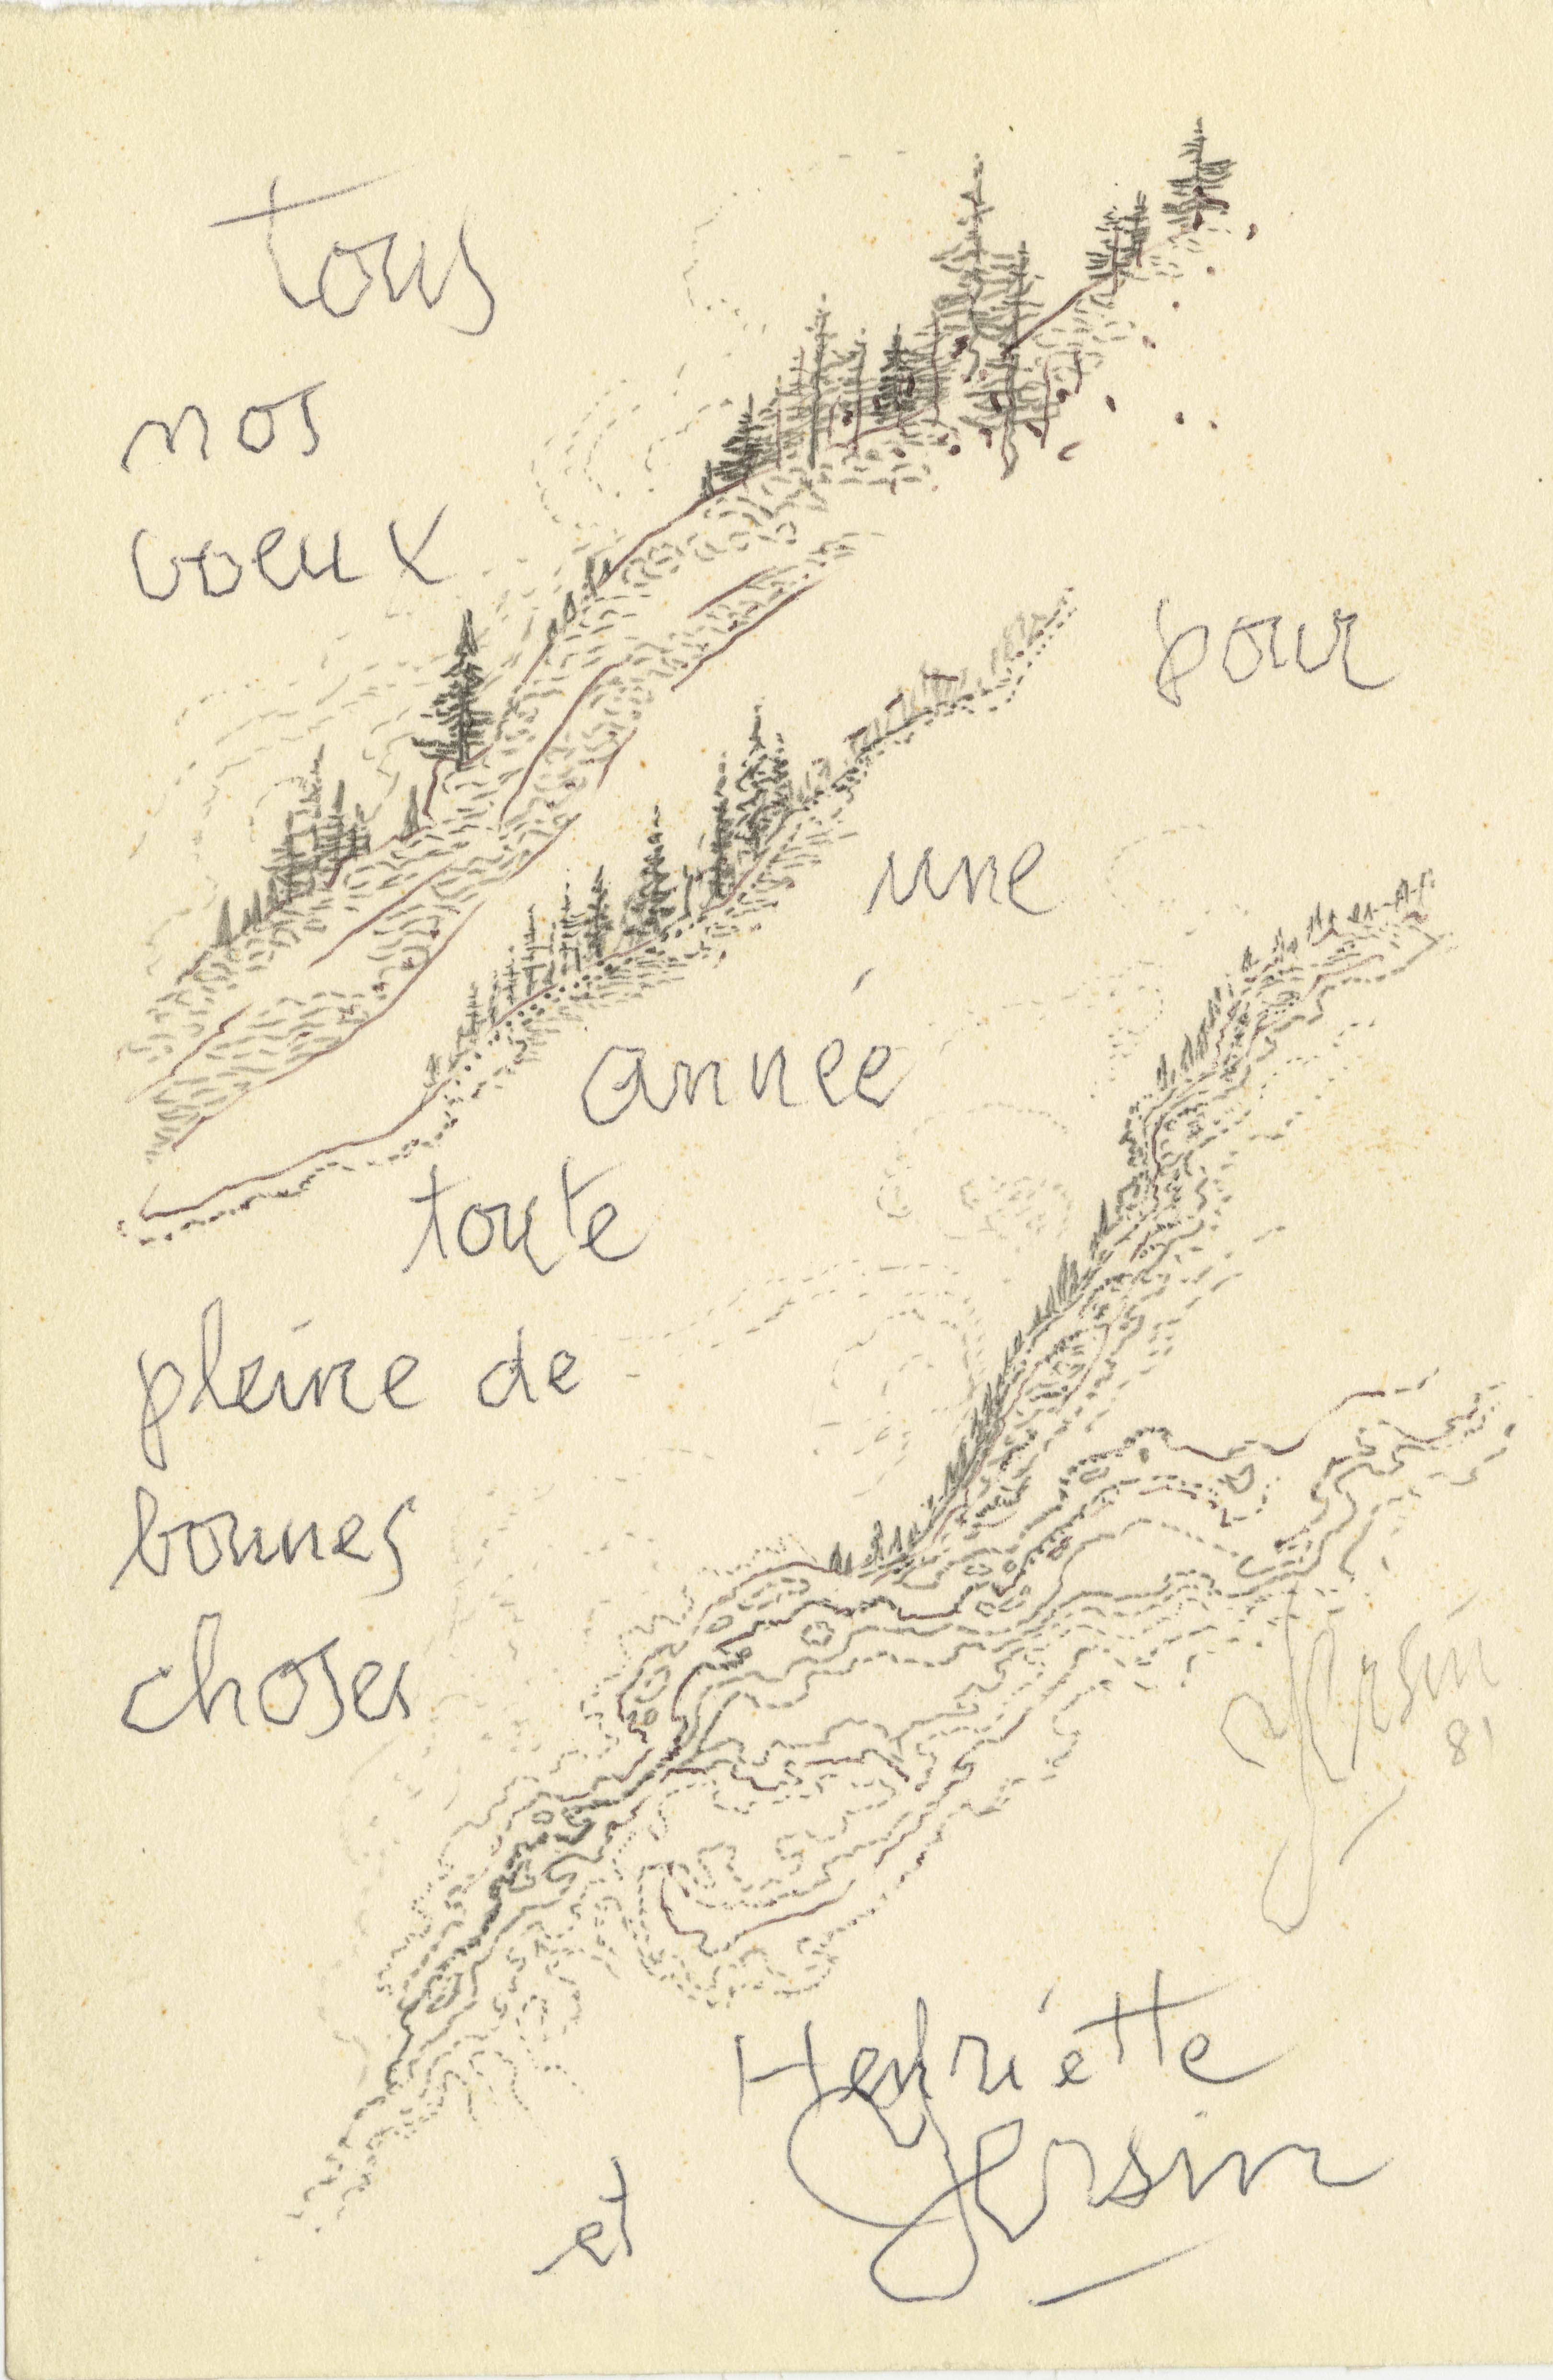 tous
nos
voeux
pour
une
année
toute
pleine de
bonnes
choses
Yersin
81
Henriette
et Yersin